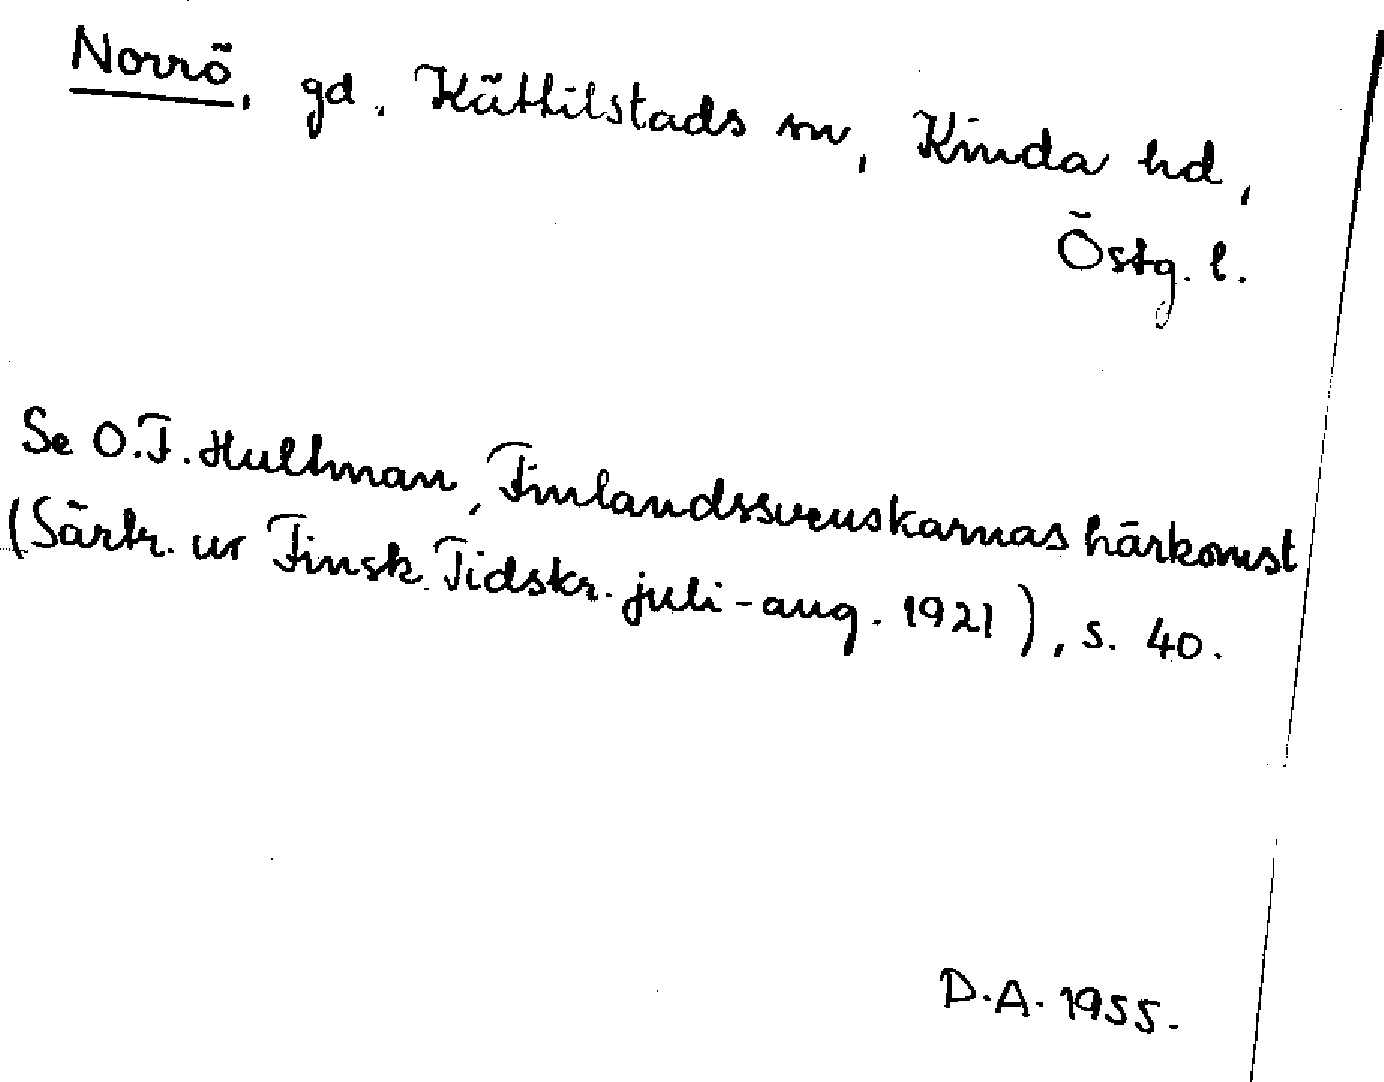 Norrö, gd. Kättilstads sn, Kinda hd,
Östg. l.
Se O.F. Hultman, Finlandssvenskarnas härkomst
(Särtr. ur Finsk Tidskr. juli-aug. 1921), s. 40.
D.A. 1955.